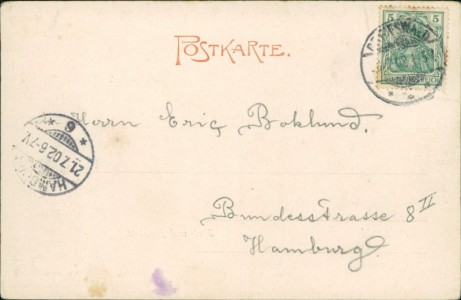 POSTKARTE.
5 5
Herrn Eric Boklund.
6
21.7.02.6-7V
Bundesstrasse 8 II
Hamburg.